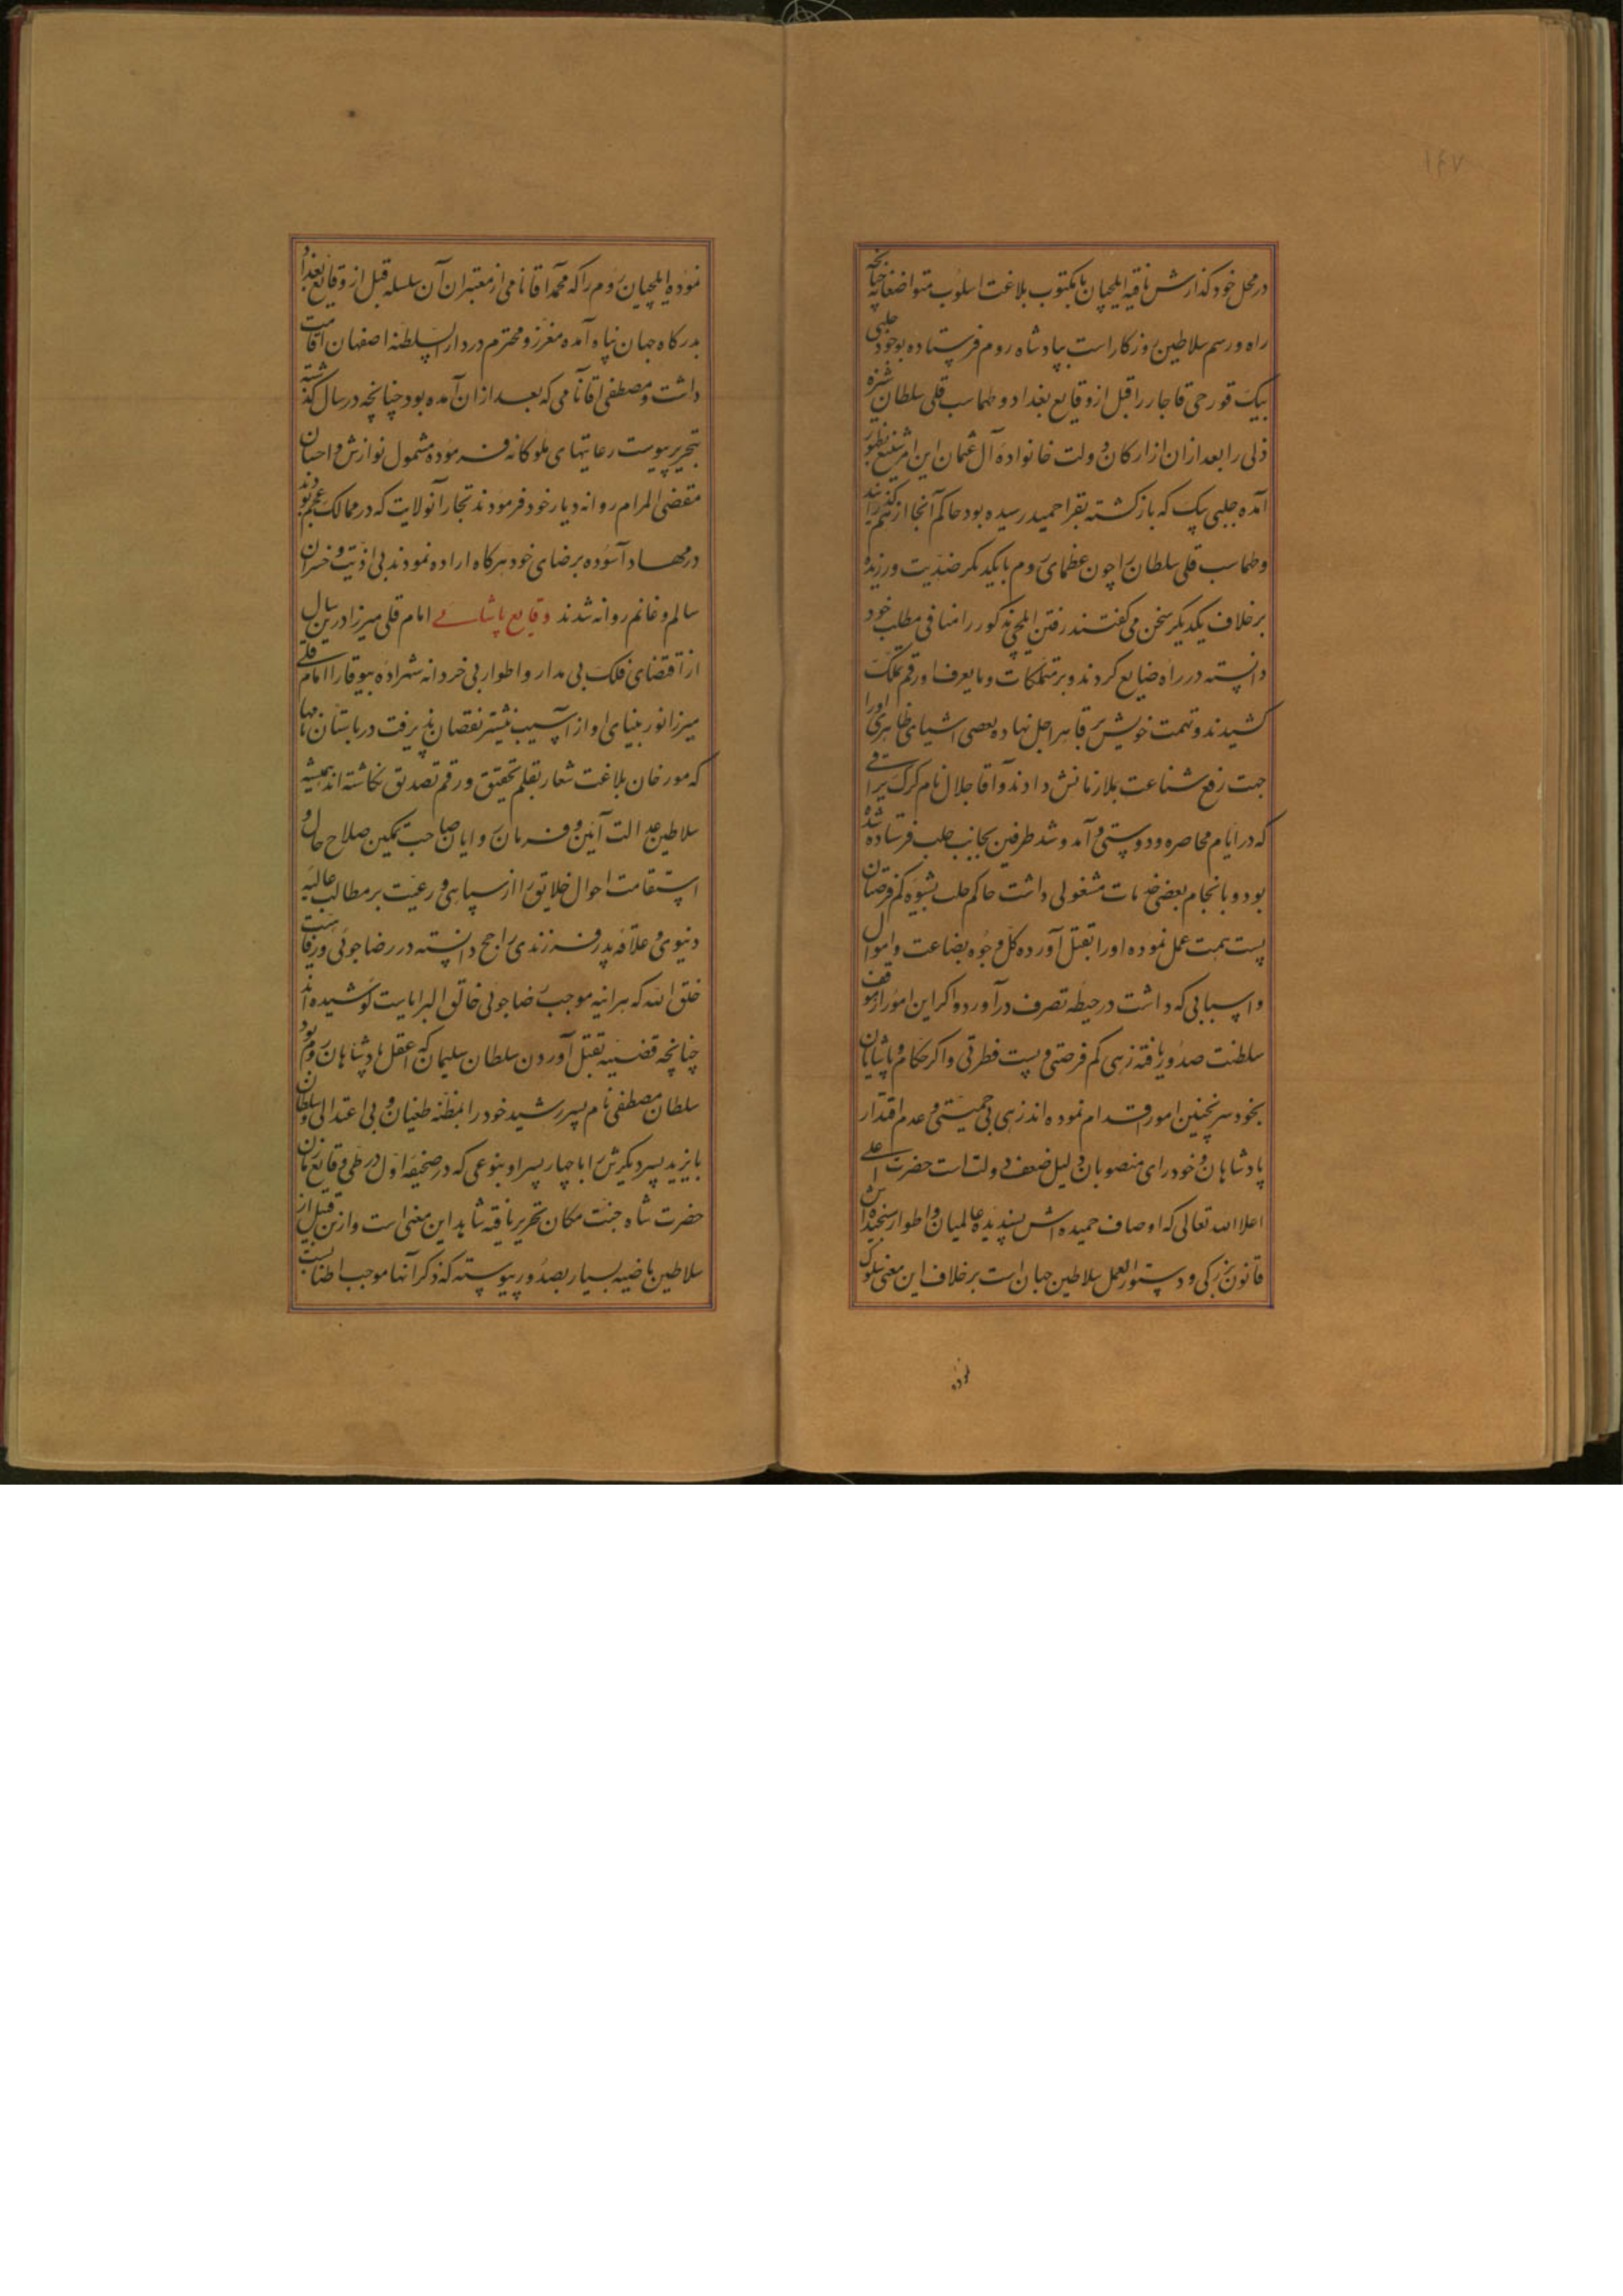 ۱۴۷
در محل خود گذارش یافته ایلچیان با مکتوب بلاغت اسلوب متواضعانه چنانچه
راه و رسم سلاطین روزکار است بپادشاه روم فرستاده بوجود چلبی
بیک قورچی قاجار را قبل از وقایع بغداد و طهماسب قلی سلطان شیره
ذلی را بعد از ان از ارکان دولت خانواده آل عثمان این امر شنیع بظهور
آمده چلبی بیک که بازگشته بقرا حمید رسیده بود حاکم آنجا از هم گذرانید
و طهماسب قلی سلطان را چون عظمای روم با یکدیکر ضدیت ورزیده
برخلاف یکدیکر سخن می گفتند رفتن ایلچی مذکور را منافی مطلب خود
دانسته در راه ضایع کردند و بر متملکات و ما یعرف او رقم تملک
کشیدند و تهمت خویش بر قابض اجل نهاده بعضی اشیای ظاهری او را
جهت رفع شناعت بملازمانش دادند و آقا جلال نام کرک یراقی
که در ایام محاصره و دوستی و آمد و شد طرفین بجانب حلب فرستاده شده
بود و بانجام بعضی خدمات مشغولی داشت حاکم حلب بشیوه کم فرصتان
پست همت عمل نموده او را بقتل آورده کل وجوه بضاعت و اموال
و اسبابی که داشت در حیطه تصرف درآورد و اکر این امور از موقف
سلطنت صدور یافته زهی کم فرصتی و پست فطرتی و اکر حکام و پاشایان
بخود سر چنین امور اقدام نموده اند زهی بی حمیتی و عدم اقتدار
پادشاهان و خودرای منصوبان دلیل ضعف دولت است حضرت اعلی
اعلا الله تعالی که اوصاف حمیده اش پسندیده عالمیان و اطوار سنجیده اش
قانون بزرکی و دستور العمل سلاطین جهان است برخلاف این معنی سلوک
نموده ایلچیان روم را که محمد آقا نامی از معتبران آن سلسله قبل از وقایع بغداد
بدرکاه جهان پناه آمده معزز و محترم در دار السلطنه اصفهان اقامت
داشت و مصطفی آقا نامی که بعد از ان آمده بود چنانچه در سال گذشته
بتحریر پیوست رعایتهای ملوکانه فرموده مشمول نوازش و احسان
مقضی المرام روانه دیار خود فرمودند تجار آنولایت که در ممالک عجم بودند
در مهاد آسوده برضای خود هرکاه اراده نمودند بی اذیت و خسران
سالم و غانم روانه شدند وقایع امام قلی میرزا درین سال
از اقتضای فلک بی مدار و اطوار بی خردانه شهزاده بیوقار امام قلی
میرزا نور بینای او از آسیب نیشتر نقصان پذیرفت در باستان نامها
که مورخان بلاغت شعار بقلم تحقیق و رقم تصدیق نگاشته اند همیشه
سلاطین عدالت آیین و فرمان روایان صاحب تمکین صلاح حال و
استقامت احوال خلایق را از سپاهی و رعیت بر مطالب عالیه
دنیوی و علاقه پدر فرزندی راجح دانسته در رضا جوئی و رفاهیت
خلق الله که هر اینه موجب رضا جوئی خالق البرایاست کوشیده اند
چنانچه قضیه بقتل آوردن سلطان سلیمان که اعقل پادشاهان روم بود
سلطان مصطفی نام پسر رشید خود را بمظنه طغیان و بی اعتدالی و سلطان
بایزید پسر دیکرش را با چهار پسر او بنوعی که در صحیفه اول در طی وقایع زمان
حضرت شاه جنت مکان تحریر یافته شاهد این معنی است و ازین قبیل از
سلاطین ماضیه بسیار بصدور پیوسته که ذکر آنها موجب اطنابست